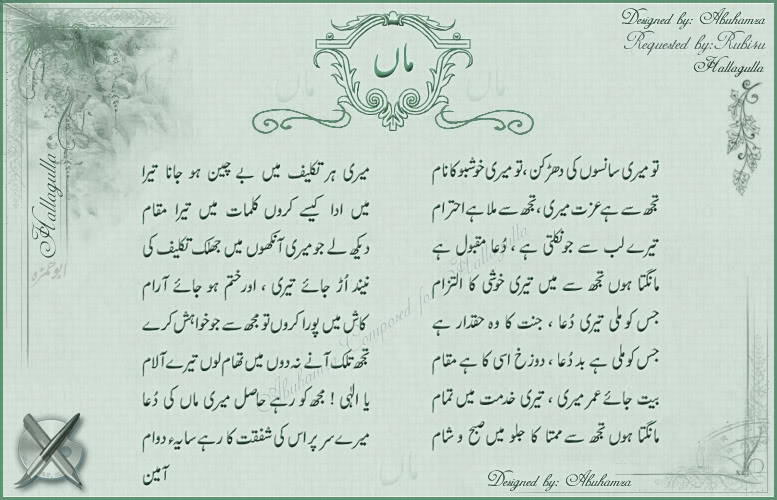 Designed by: Abuhamza
Requested by: Rubiru
Hallagulla
ماں
تو میری سانسوں کی دھڑکن ،تو میری خوشبو کا نام
تجھ سے ہے عزت میری، تجھ سے ملا ہے احترام
تیرے لب سے جو نکلتی ہے ، دُعا مقبول ہے
مانگتا ہوں تجھ سے میں تیری خوشی کا التزام
جس کو ملی تیری دُعا ، جنت کا وہ حقدار ہے
جس کو ملی ہے بد دُعا ، دوزخ اسی کا ہے مقام
بیت جائے عمر میری ، تیری خدمت میں تمام
مانگتا ہوں تجھ سے ممتا کا جلو میں صبح و شام
میری ہر تکلیف میں بے چین ہو جانا تیرا
میں ادا کیسے کروں کلمات میں تیرا مقام
دیکھ لے جو میری آنکھوں میں جھلک تکلیف کی
نیند اُڑ جائے تیری ، اور ختم ہو جائے آرام
کاش میں پورا کروں تو مجھ سے جو خواہش کرے
تجھ تلک آنے نہ دوں میں تھام لوں تیرے آلام
یا الٰہی ! مجھ کو رہے حاصل میری ماں کی دُعا
میرے سر پر اس کی شفقت کا رہے سایہء دوام
آمین
Hallagulla
ابوحمزہ
Abuhamza Composed for Hallagulla
Designed by: Abuhamza